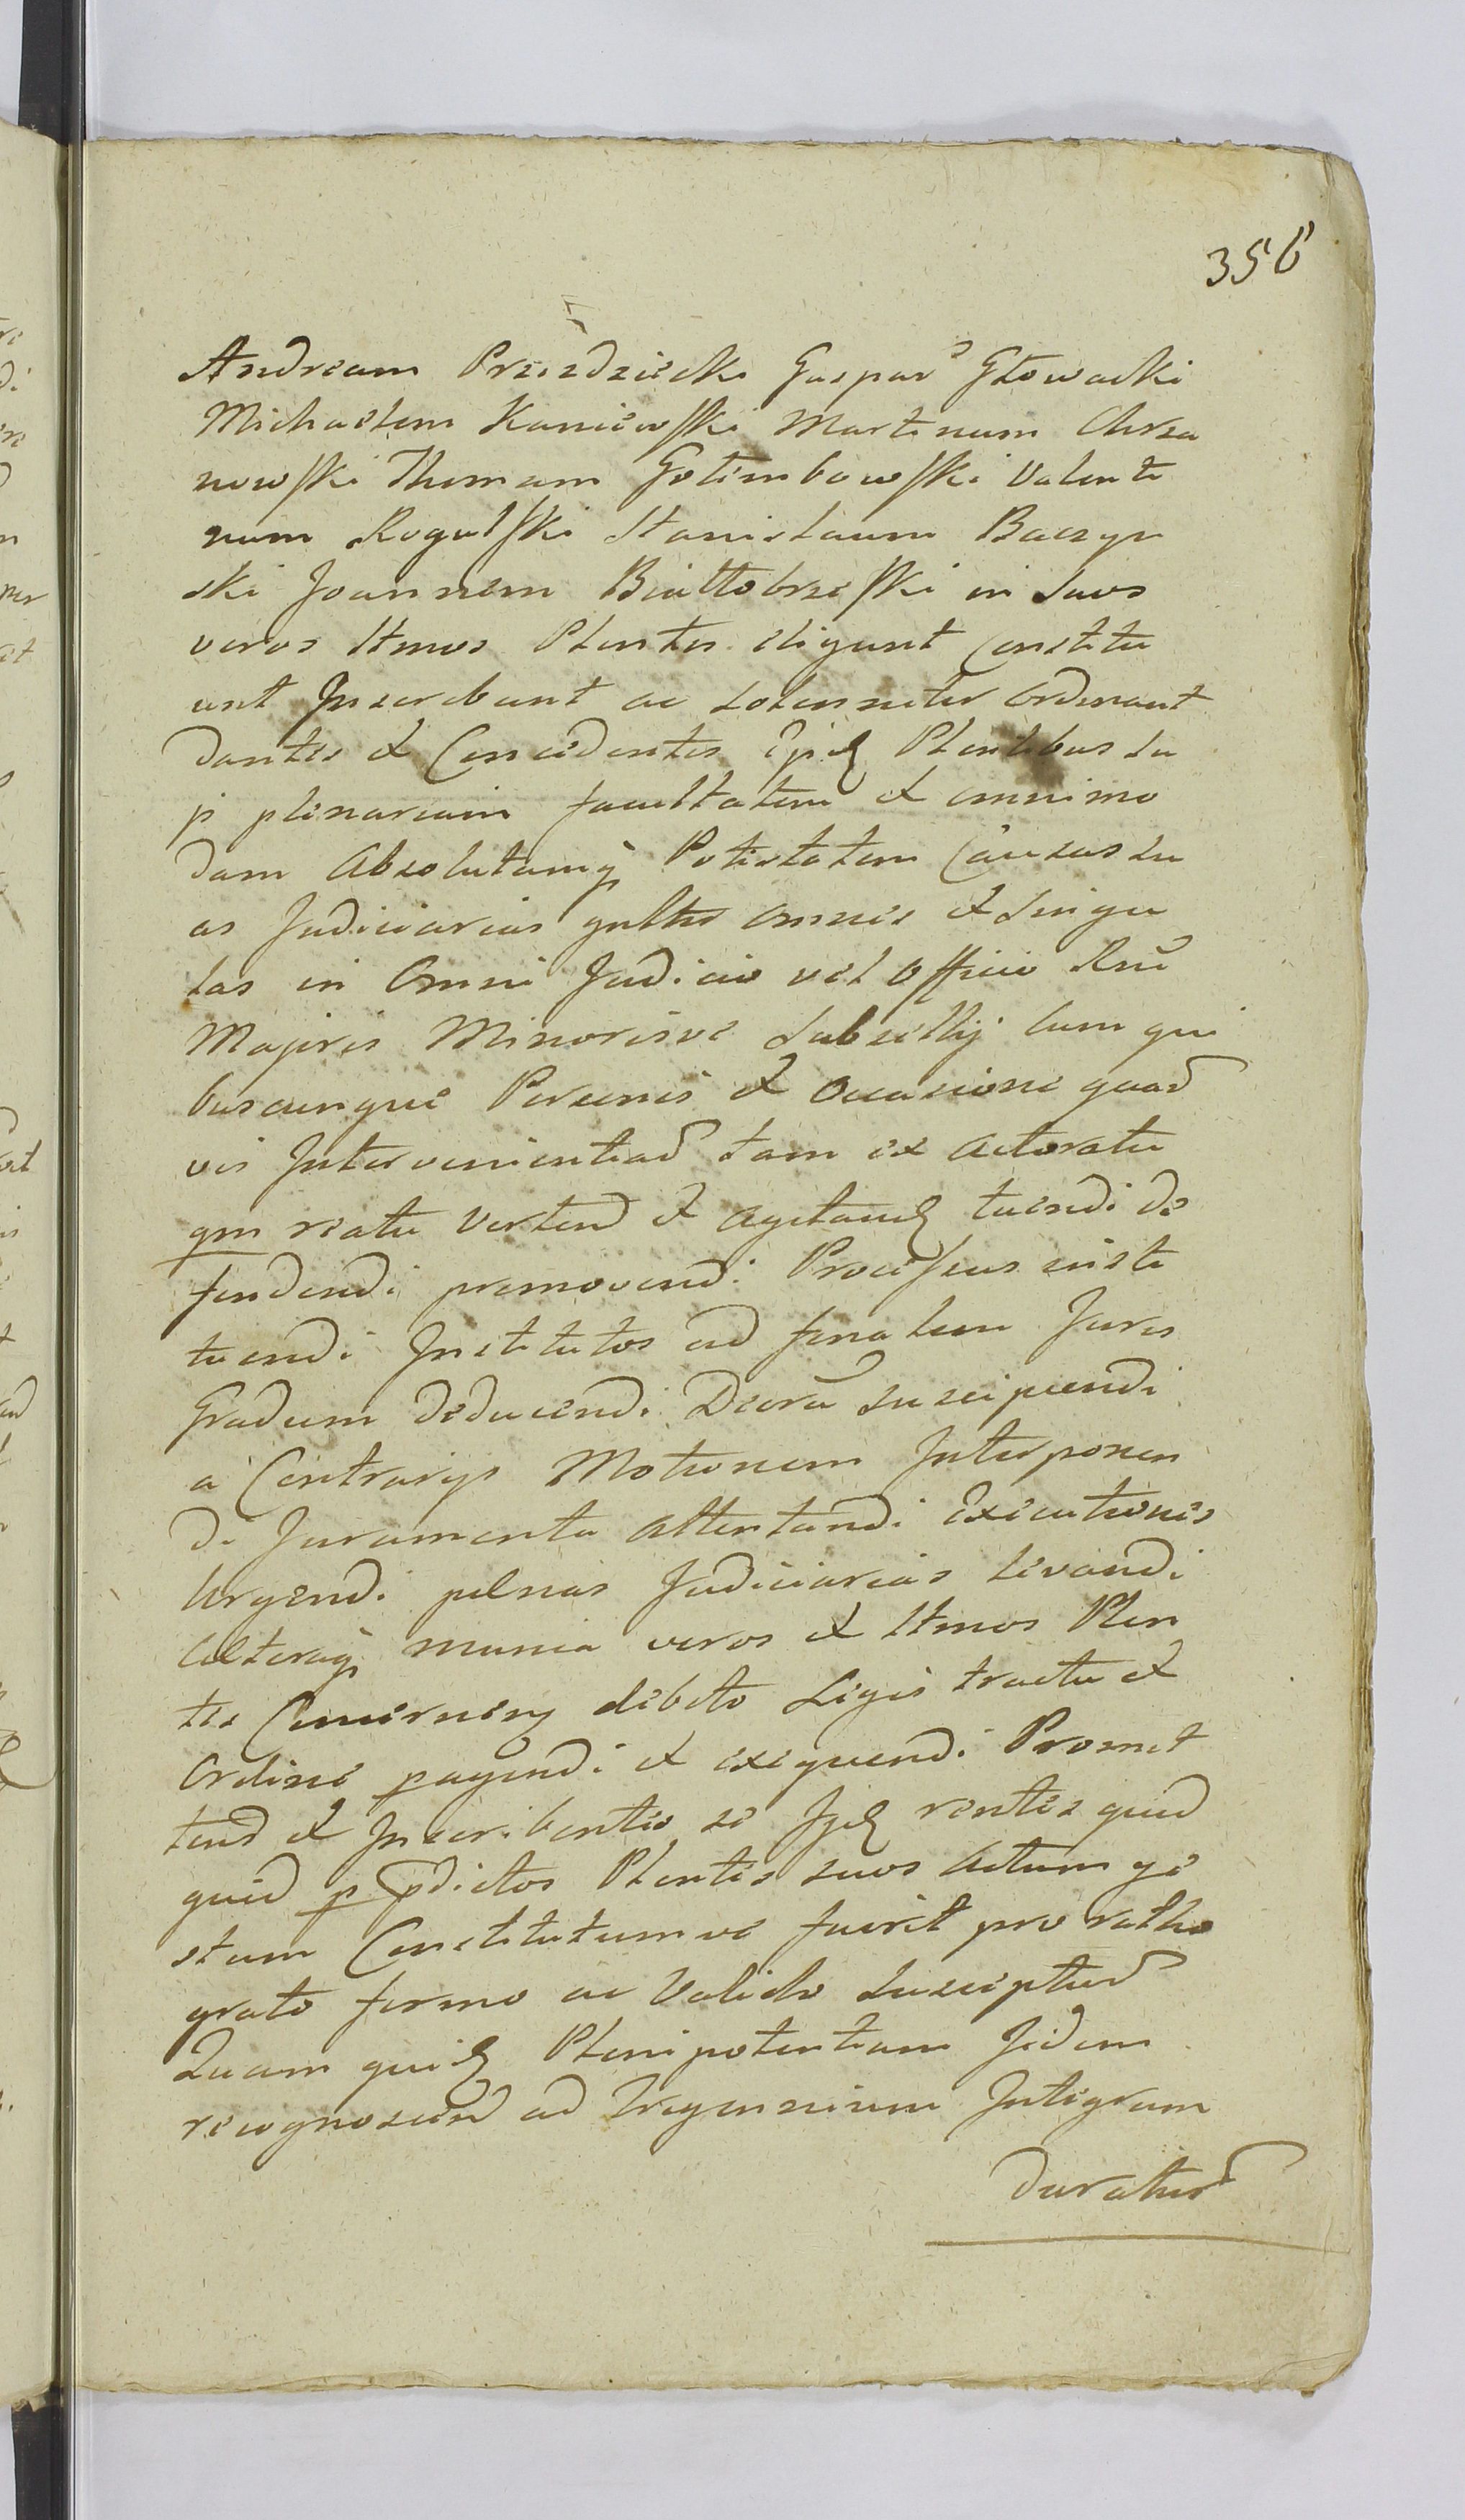 356
Andream Przezdziecki Gaspar Głowacki
Michaelem Kaniewski Martinum Chrza
nowski Thomam Gołembowski Valenti
num Rogulski Stanislaum Baczyn
ski Joannem Białłobrzeski in suos
veros ltmos Plentes eligunt Constitu
unt Inscribunt ac solenniter Ordinant
dantes et Concedentes Plentibus su
is plenariam facultatem et omnimo
dam Absolutamq Potestatem Causas su
as Judiciarias gnltr omnes et singu
las in Omni Judicio vel Officio Rni
Majoris Minorisve Subsellij Cum qui
buscunque Personis et Occasione quad
vis Intervenientiad tam ex Actoratu
qm reatu Vertend et agitand tuendi de
fendendi promovendi Processus insti
tuendi Institutos ad finalem Juris
Gradum deducendi Decra suscipiendi
a Contrarijs Motionem Interponen
di Juramenta Attentandi Executiones
Urgendi pelnas Judiciarias levandi
Alteraq munia veros et ltmos Plen
tes Concernen debito Legis tractu et
Ordine pagendi et exequendi Promit
tend et Inscribentes se rentes quid
quid p pdictos Plentes suos Actum ge
stum Constitutumve fuerit pro ratho
grato firmo ac Valido suscipiud
Quam quid Plenipotentiam Iidem
recognoscend ad Tregennium Integrum
duratur